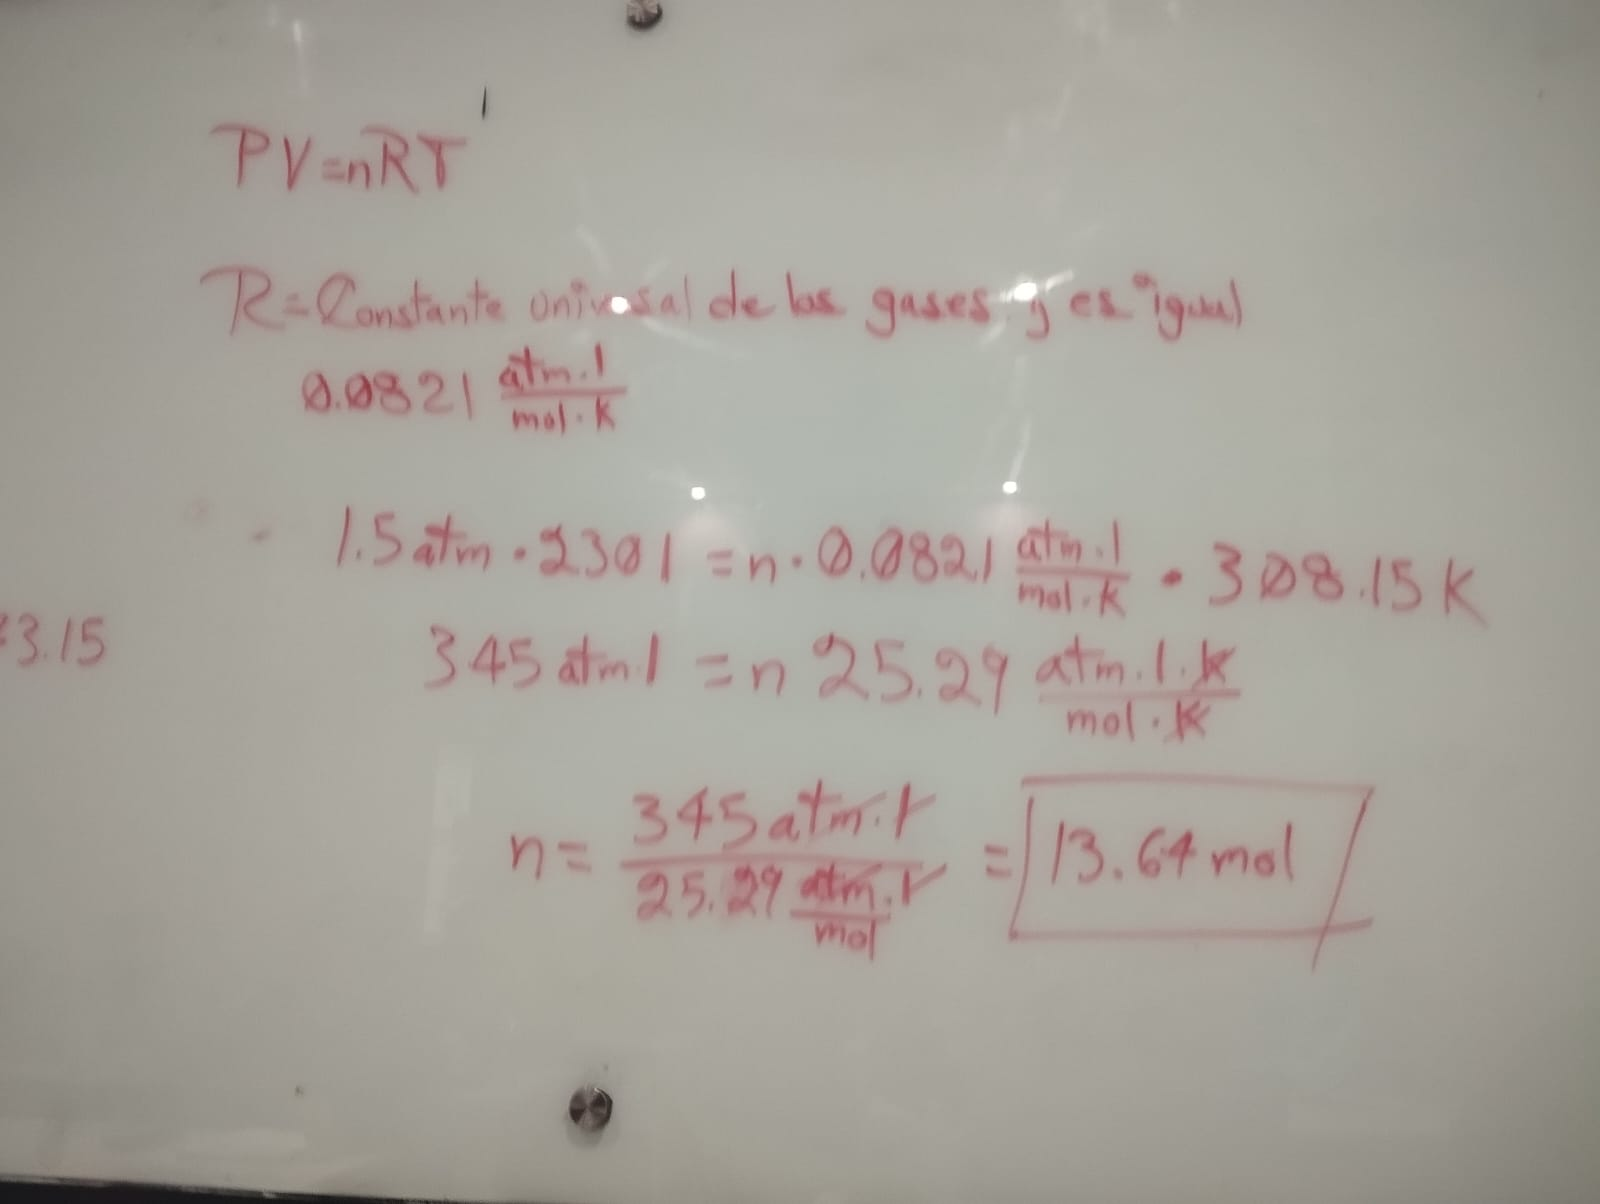 PV=nRT
R=Constante universal de los gases y es igual
0.0821 atm.l
mol.K
1.5 atm . 230 l = n . 0.0821 atm.l . 308.15 K
mol.K
3.15
345 atm l = n 25.29 atm.l.K
mol.K
n = 345 atm.l = 13.64 mol
25.29 atm.l
mol